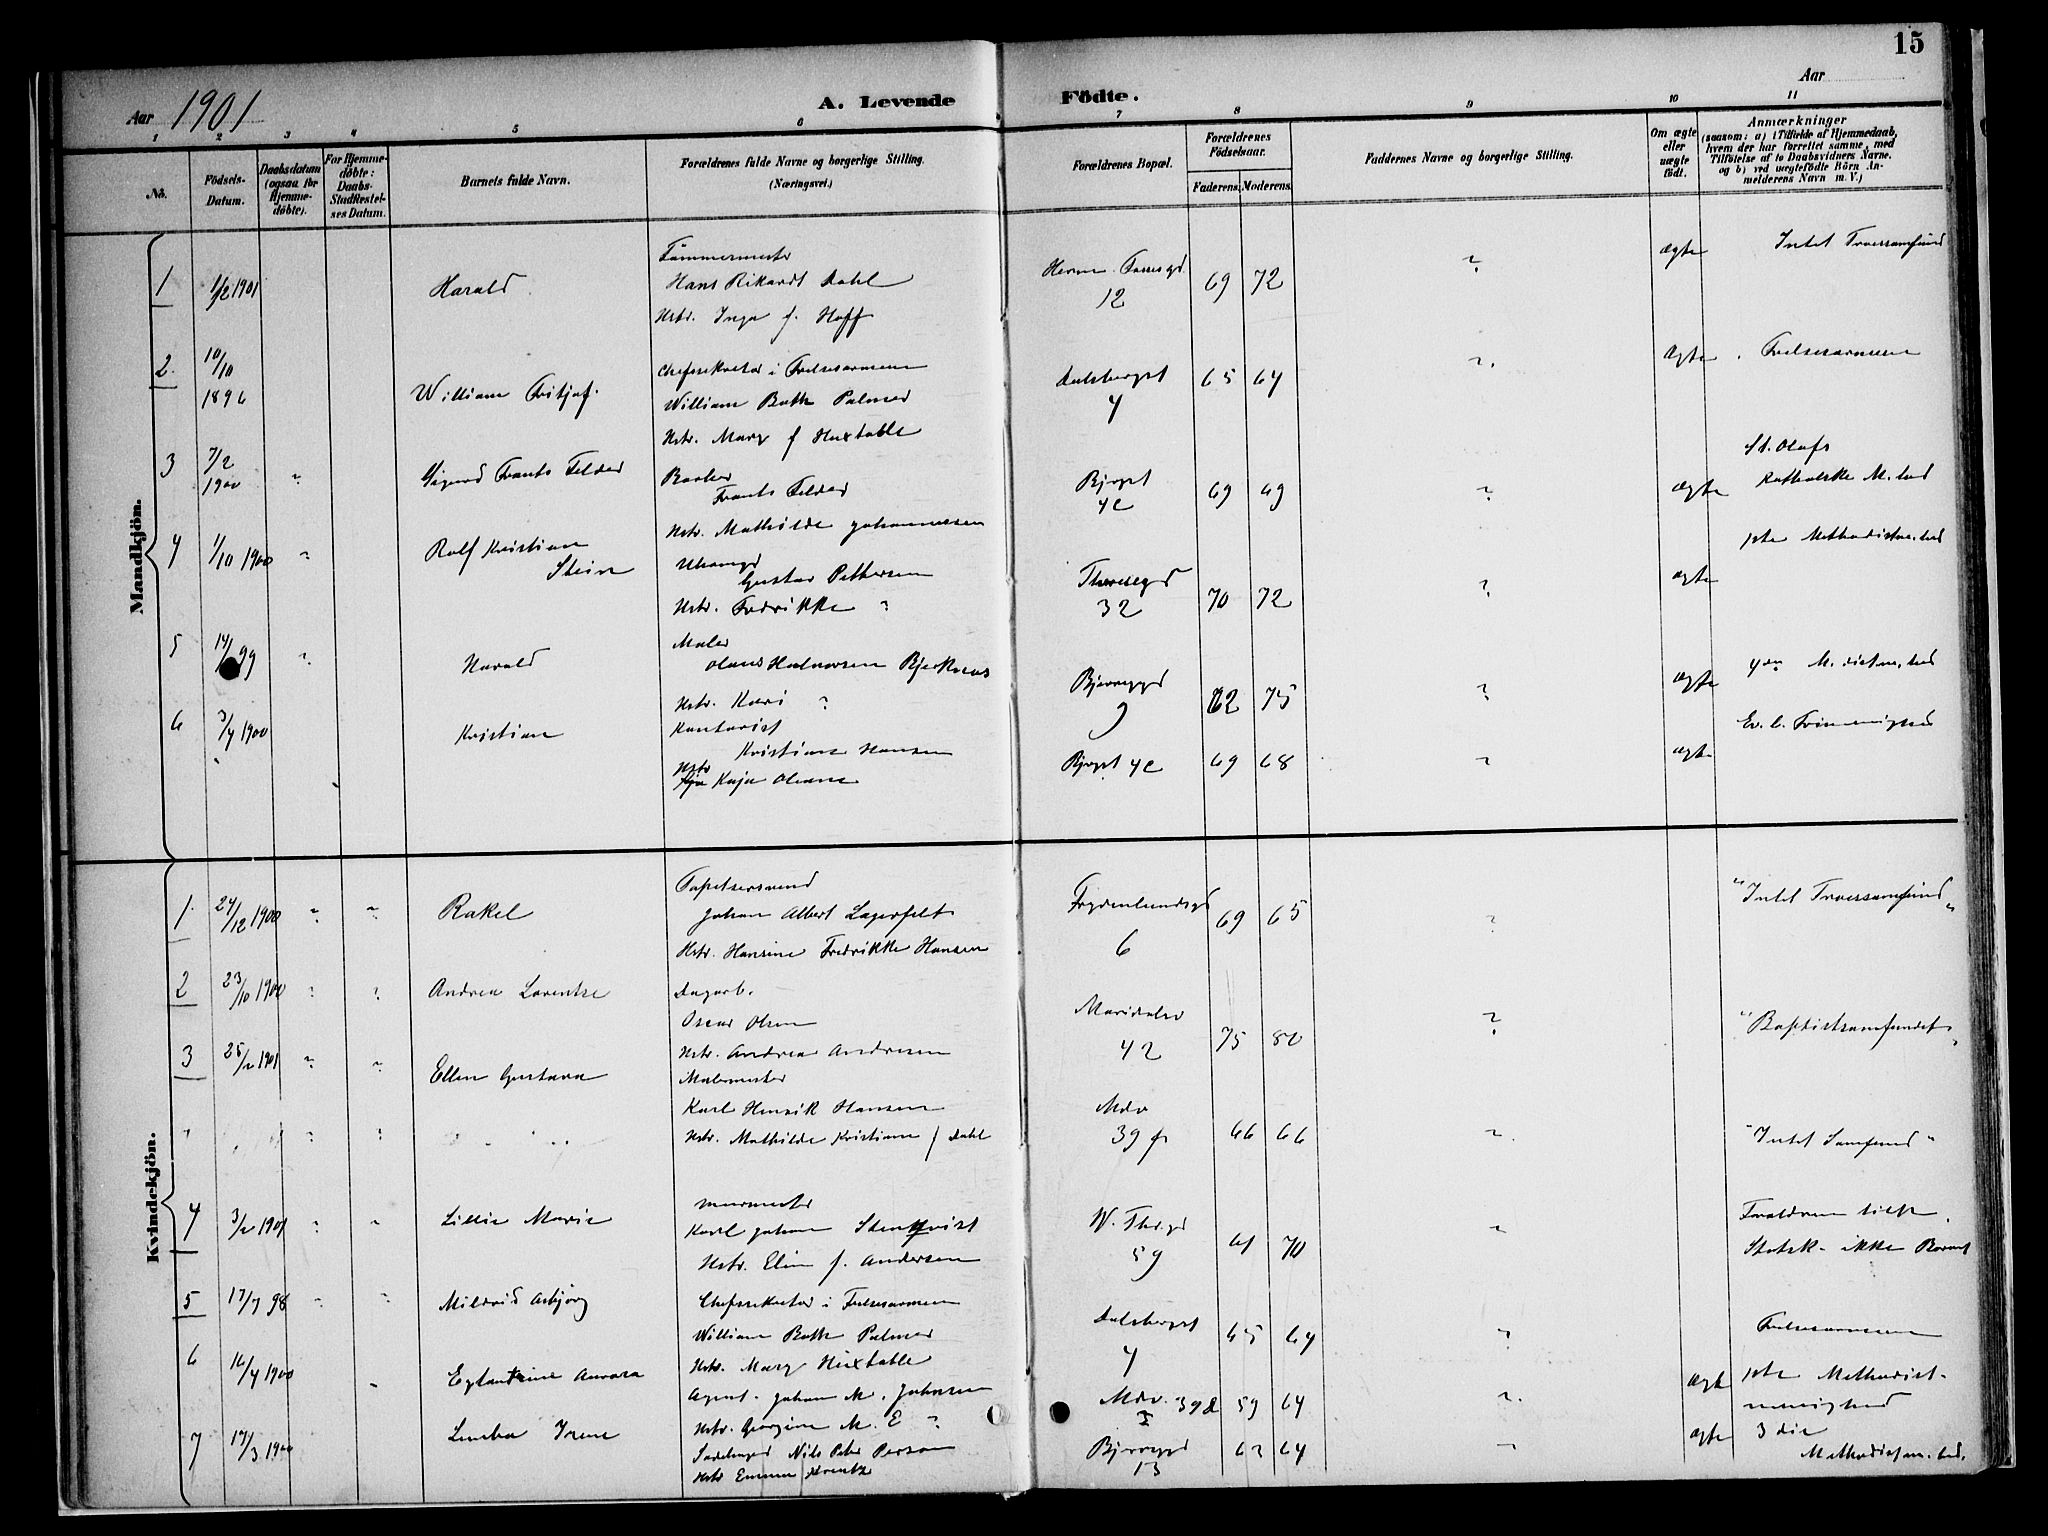 15
Aar 1901
A. Levende Födte.
Aar
1 2 3 4 5 6 7 8 9 10 11
No.
Födsels-Datum.
Daabsdatum (ogsaa for Hjemmedöbte).
For Hjemmedöbte: Daabs-Stadfæstelses Datum.
Barnets fulde Navn.
Forældrenes fulde Navne og borgerlige Stilling.
(Næringsvei.)
Forældrenes Bopæl.
Forældrenes Födselsaar.
Faderens. Moderens.
Faddernes Navne og borgerlige Stilling.
Om ægte eller uægte födt.
Anmærkninger
(saasom: a) i Tilfælde af Hjemmedaab, hvem der har forrettet samme, med Tilføielse af to Daabsvidners Navne, og b) ved uægtefödte Börn Anmelderens Navn m. V.)
Mandkjön.
1 1/2 1901 Harald
Tömmermester
Hans Rikardt Dahl
Hstr. Inga f. Hoff
12 69 72 ægte Intet Troessamfund
2. 10/10 1896 William Fritjof.
Chefsekretær i Frelsesarmeen
William Both Palmer
Hstr. Mary f Huxtable
Dalsbergst 4 65 64 ægte Frelsesarmeen
3 7/2 1900 Sigurd Frants Felder
Frants Felder
Hstr. Mathilde Johannesen
69 69 ægte St. Olafs
Katholske M.hed
4 1/10 1900 Rolf Kristian
Gustav Pettersen
Hstr. Fredrikke "
Theresegd 32 70 72 ægte 1ste Methodistme.hed
5 99 Harald
Maler
Hstr. Kari "
9 62 75 ægte
6 3/4 1900 Kristian
Kontorist
Kristian Hansen
Hstr Kaja
69 68 ægte Ev. l. Frimenighed
Kvindekjön.
1. 24/12 1900 Rakel
Tapetsersvend
Johan Albert Lagerfelt
Hstr. Hansine Fredrikke Hansen
Frydenlundsgd 6 69 65 "Intet Troessamfund"
2 23/10 1900 Andrea Lorentze
Dagarb.
Oscar Olsen
Hstr. Andrea Andresen
42 75 80 "Baptistsamfundet"
3 25/2 1901 Ellen Gustava
Malermester
Karl Henrik Hansen
Hstr. Mathilde Kristiane f Dahl
39 66 66 "Intet Samfund"
4 3/2 1901 Lillie Marie
Murmester
Karl Johan Stenqvist
Hstr. Elin f. Andersen
59 61 70 Forældrene tilh.
Statsk. ikke Barnet
5 17/7 98 Mildrid Asbjørg
Chefssekretær i Frelsesarmeen
William Both Palmer
Hstr. Mary Huxtable
Dalsbergst 4 65 64 Frelsesarmeen
6 16/4 1900 Eglantine Aurora
Agent. Johan M. Johnsen
Hstr. Georgine M. E "
59 64 ægte 1ste Methodist-
menighed
7 17/3 1900 Irene
Nils Peter Person
Hstr Emma
13 62 64 ægte 3die
Methodistm.hed.